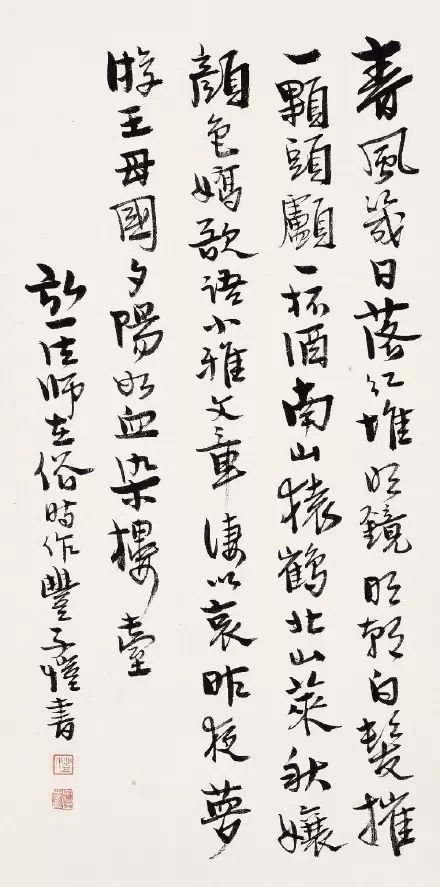 春風幾日落紅堆明鏡明朝白髮摧
一顆頭顱一杯酒南山猿鶴北山萊秋孃
顏色嬌欲語小雅文章淒以哀昨夜夢
游王母國夕陽如血染樓臺
弘一法師在俗時作豐子愷書